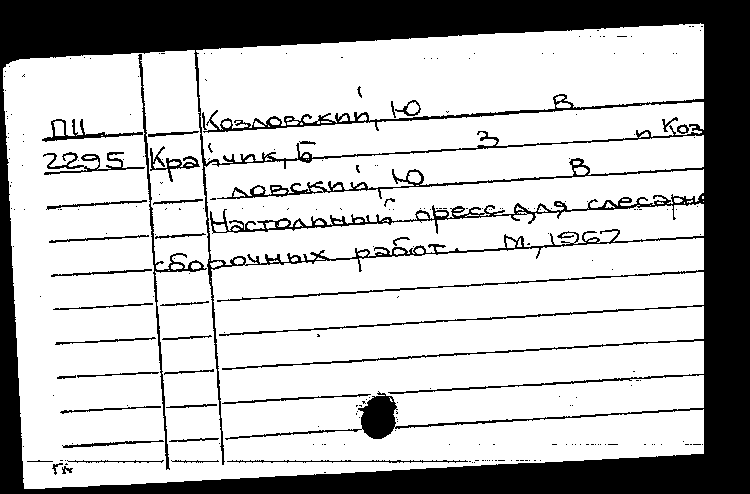 ПЦ Козловский, Ю В
2295 Крайчик, Б З и Коз
ловский, Ю В
Настольный пресс для слесарно
сборочных работ. М., 1967